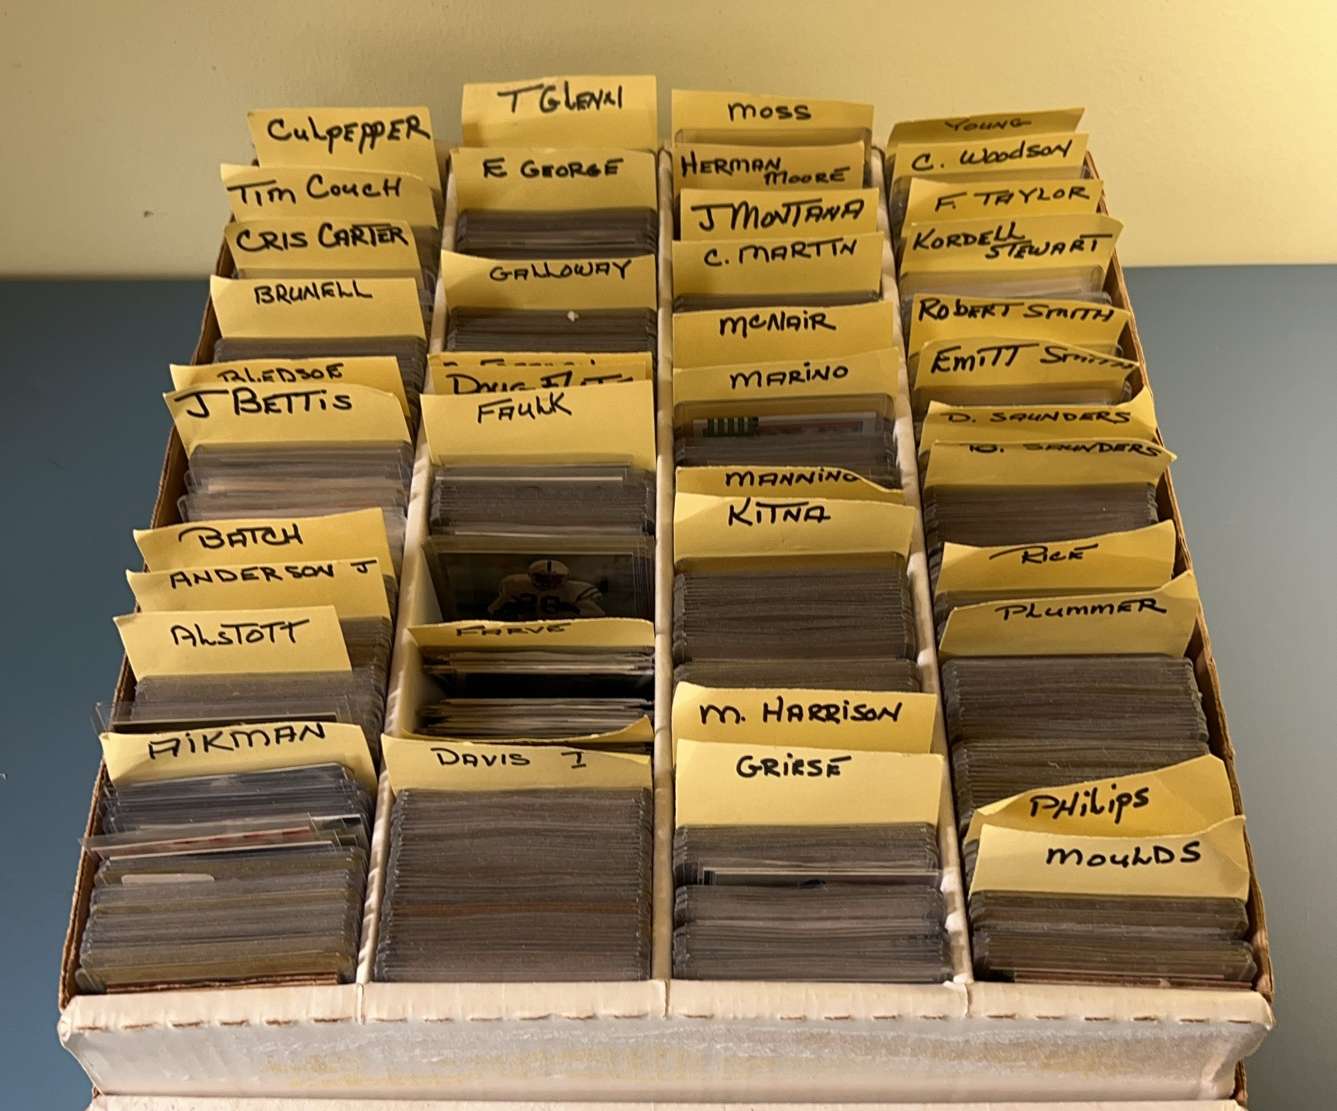 CuLPEPPER
Tim CoucH
CRIS CARTER
BRUNELL
BLEDSOE
J BETTiS
BATCH
ANDERSON J
ALSTOTT
AIKMAN
T GLENN
E GEORGE
GALLOWAY
DOUG
FAULK
FARVE
DAVIS T
moss
HERMAN
MOORE
J MONTANA
C. MARTIN
McNAiR
MARINO
MANNING
KiTNA
m. HARRISON
GRIESE
YOUNG
C. WoodSON
F. TAYLOR
KORDELL
STEWART
RobERT SmiTH
EmiTT SmiTH
D. SAUNDERS
SAUNDERS
RICE
PLUMMER
PHiLips
mouLDS